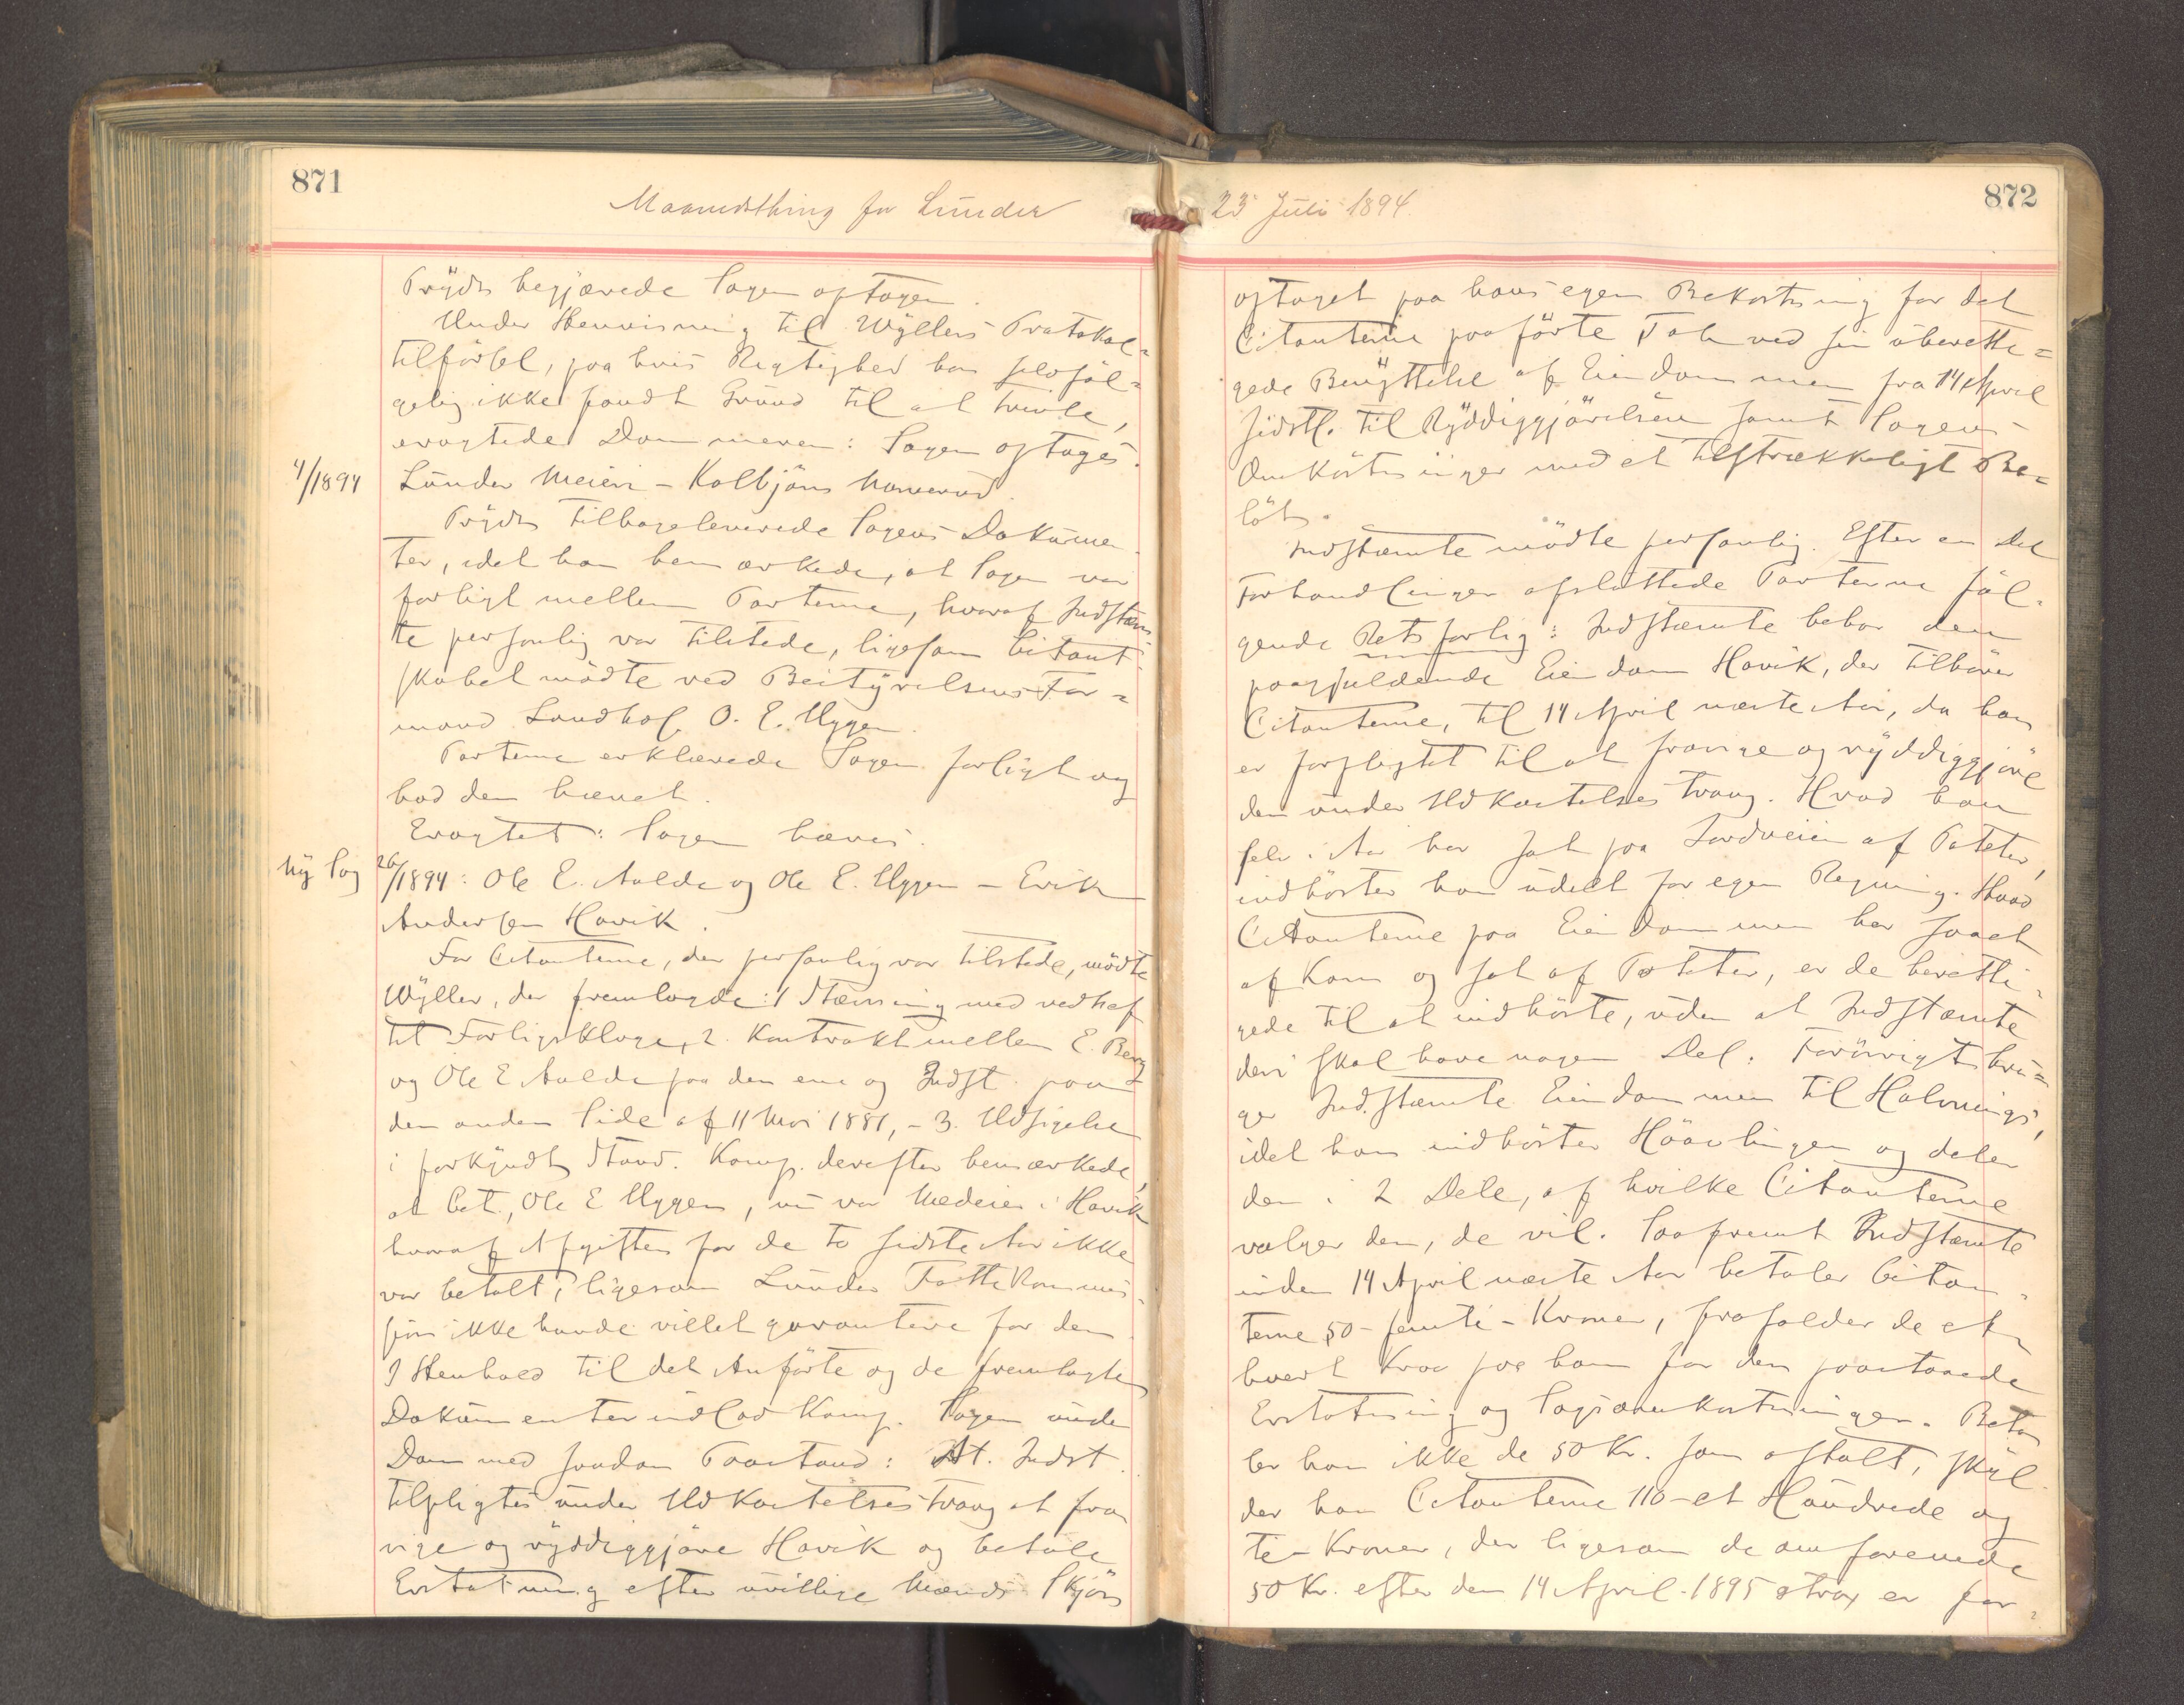 871
Maanedsthing for Lunder
Prydz begjærede Sagen optagen.
Under Henvisning til Wyllers Protokol=
tilførsel, paa hvis Rigtighed han selvføl=
gelig ikke fandt Grund til at tvivle,
eragtede Dommeren: Sagen optages.
4/1894 Lunder Meieri - Kolbjørn
Prydz tilbageleverede Sagens Dokumen-
ter, idet han bemærkede, at Sagen var
forligt mellem Parterne, hvoraf Indstævn-
te personlig var tilstede, ligesom Citant-
skabet mødte ved Bestyrelsens For=
mand Landhdl. O. E. Uggen.
Parterne erklærede Sagen forligt og
bad den hævet.
Eragtet: Sagen hæves.
Ny Sag 26/1894: Ole E. Aalde og Ole E. Uggen - Erik
Andersen Havik.
For Citanterne, der personlig var tilstede, mødte
Wyller, der fremlagde: 1 Stævning med vedhef
tet Forligsklage, 2. Kontrakt mellem E. Berg
og Ole E Aalde paa den ene og Indst. paa
den anden Side af 11 Mai 1881, - 3. Udsigelse
i forkyndt Stand. Komp. derefter bemærkede,
at Cit., Ole E Uggen, nu var Medeier i Havik
hvoraf Afgiften for de to sidste Aar ikke
var betalt, ligesom Lunder Fattikommis-
sion ikke havde villet garantere for den
I Henhold til det Anførte og de fremlagte
Dokumenter indlod Komp. Sagen under
Dom med saadan Paastand: At Indst.
tilpligtes under Udkastelsestvang at fra
vige og ryddiggjøre Havik og betale
Erstatning efter uvillige Mænds Skjøn
872
23 Juli 1894.
optaget paa hans egen Bekostning for det
Citanterne paaførte Tab ved sin uberetti=
gede Benyttelse af Eiendommen fra 14 April
sidstl. til Ryddiggjørelsen samt Sagens
Omkostninger med et tilstrækkeligt Be=
løb.
Indstævnte mødte personlig. Efter en Del
Forhandlinger afsluttede Parterne føl-
gende Retsforlig: Indstævnte bebor den
paagjældende Eiendom Havik, der tilhører
Citanterne, til 14 April næste Aar, da han
er forpligtet til at fravige og ryddiggjøre
den under Udkastelsestvang. Hvad han
selv i Aar har sat paa Jordveien af Poteter,
indhøster han udelt for egen Regning. Hvad
Citanterne paa Eiendommen har saaet
af Korn og sat af Poteter, er de beretti-
gede til at indhøste, uden at Indstævnte
deri skal have nogen Del. Forøvrigt bru=
ger Indstævnte Eiendommen til Halvnings,
idet han indhøster Høavlingen og deler
den i 2 Dele, af hvilke Citanterne
vælger den, de vil. Saafremt Indstævnte
inden 14 April næste Aar betaler Citan-
terne 50 - femti - Kroner, frafalder de et-
hvert Krav paa ham for den paastaaede
Erstatning og Sagsomkostninger. Beta
ler han ikke de 50 Kr. som aftalt, skyl-
der han Citanterne 110 - et Hundrede og
ti - Kroner, der ligesom de omforenede
50 Kr. efter den 14 April 1895 strax er for-